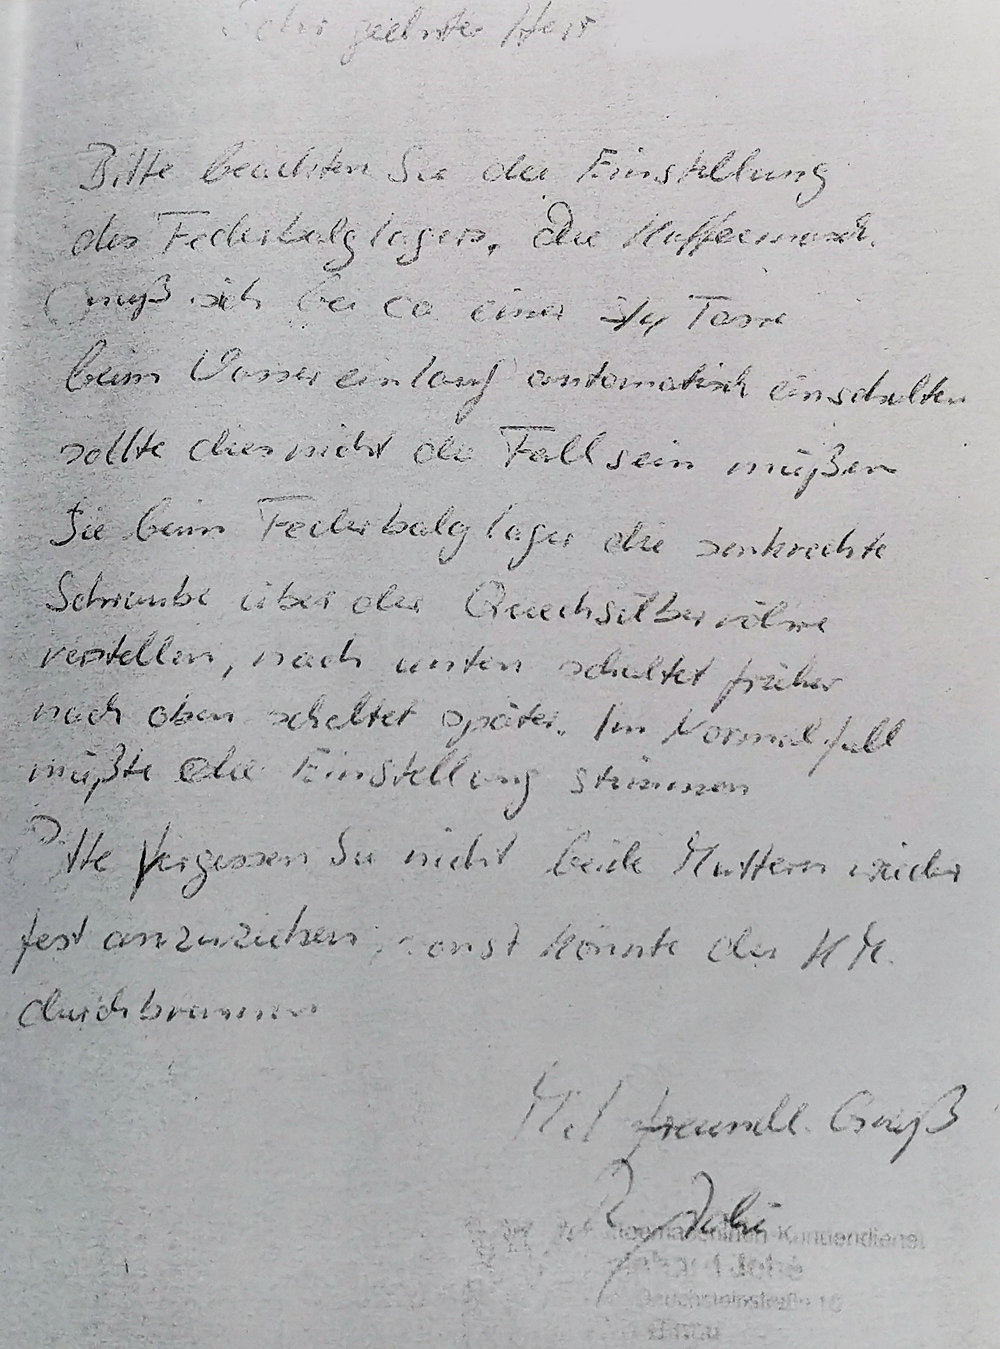 Sehr geehrter Herr
Bitte beachten Sie die Einstellung
des Federbalglagers. Die Kaffeemasch.
muß sich bei ca einer 3/4 Tasse
beim Wassereinlauf automatisch einschalten
sollte dies nicht de Fall sein müßen
Sie beim Federbalglager die senkrechte
Schraube über der Quecksilberröhre
verstellen, nach unten schaltet früher
nach oben schaltet später. Im Normalfall
müßte die Einstellung stimmen
Bitte Vergessen Sie nicht beide Muttern wieder
fest anzuziehen, sonst könnte der K M.
durchbrennen
Mit freundl. Gruß
-Kundendienst